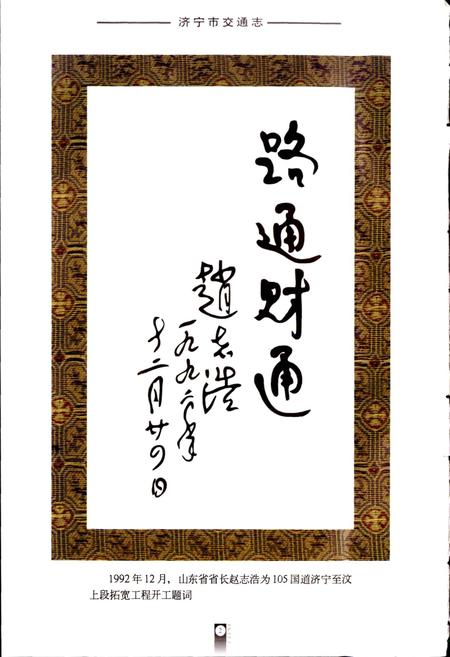 济宁市交通志
路通财通
趙志浩
一九九二年
十二月廿四日
1992年12月，山东省省长赵志浩为105国道济宁至汶
上段拓宽工程开工题词
2